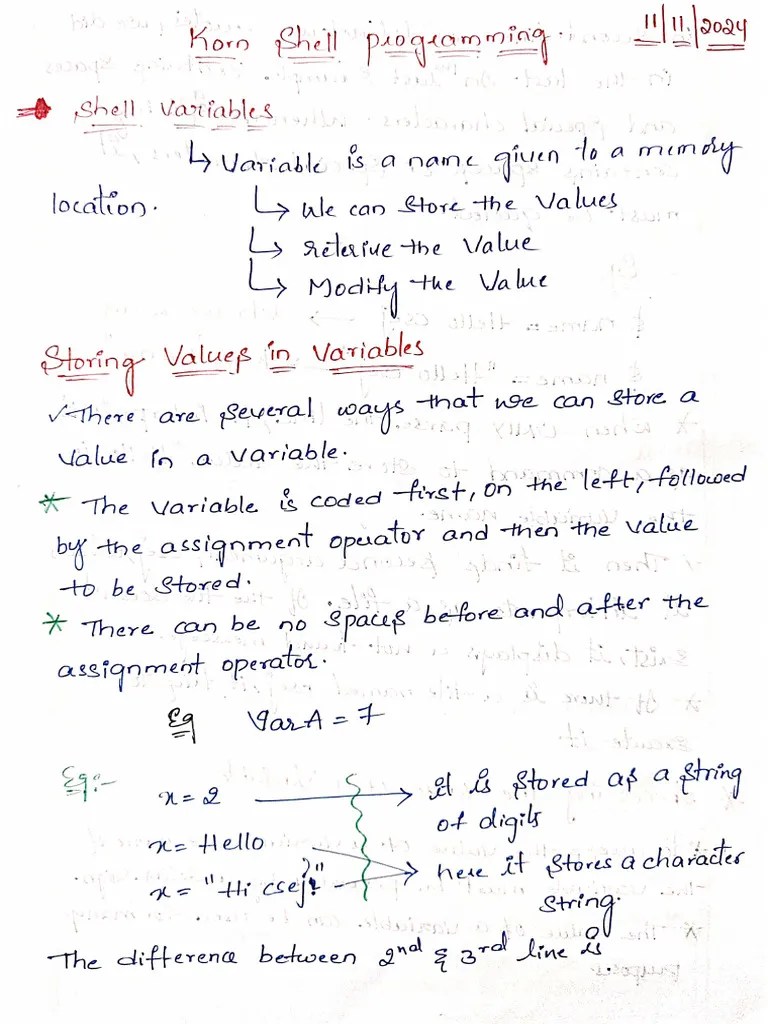 Korn Shell programming. 11/11/2024
Shell Variables
↳ Variable is a name given to a memory
location. ↳ We can store the values
↳ reterive the value
↳ Modify the value
Storing Values in Variables
✓ There are several ways that we can store a
value in a variable.
* The variable is coded first, on the left, followed
by the assignment operator and then the value
to be stored.
* There can be no spaces before and after the
assignment operator.
Eg VarA = 7
Eg:-
x = 2 → it is stored as a string
of digits.
x = Hello
x = "Hi csej" → here it stores a character
string.
The difference between 2nd & 3rd line is